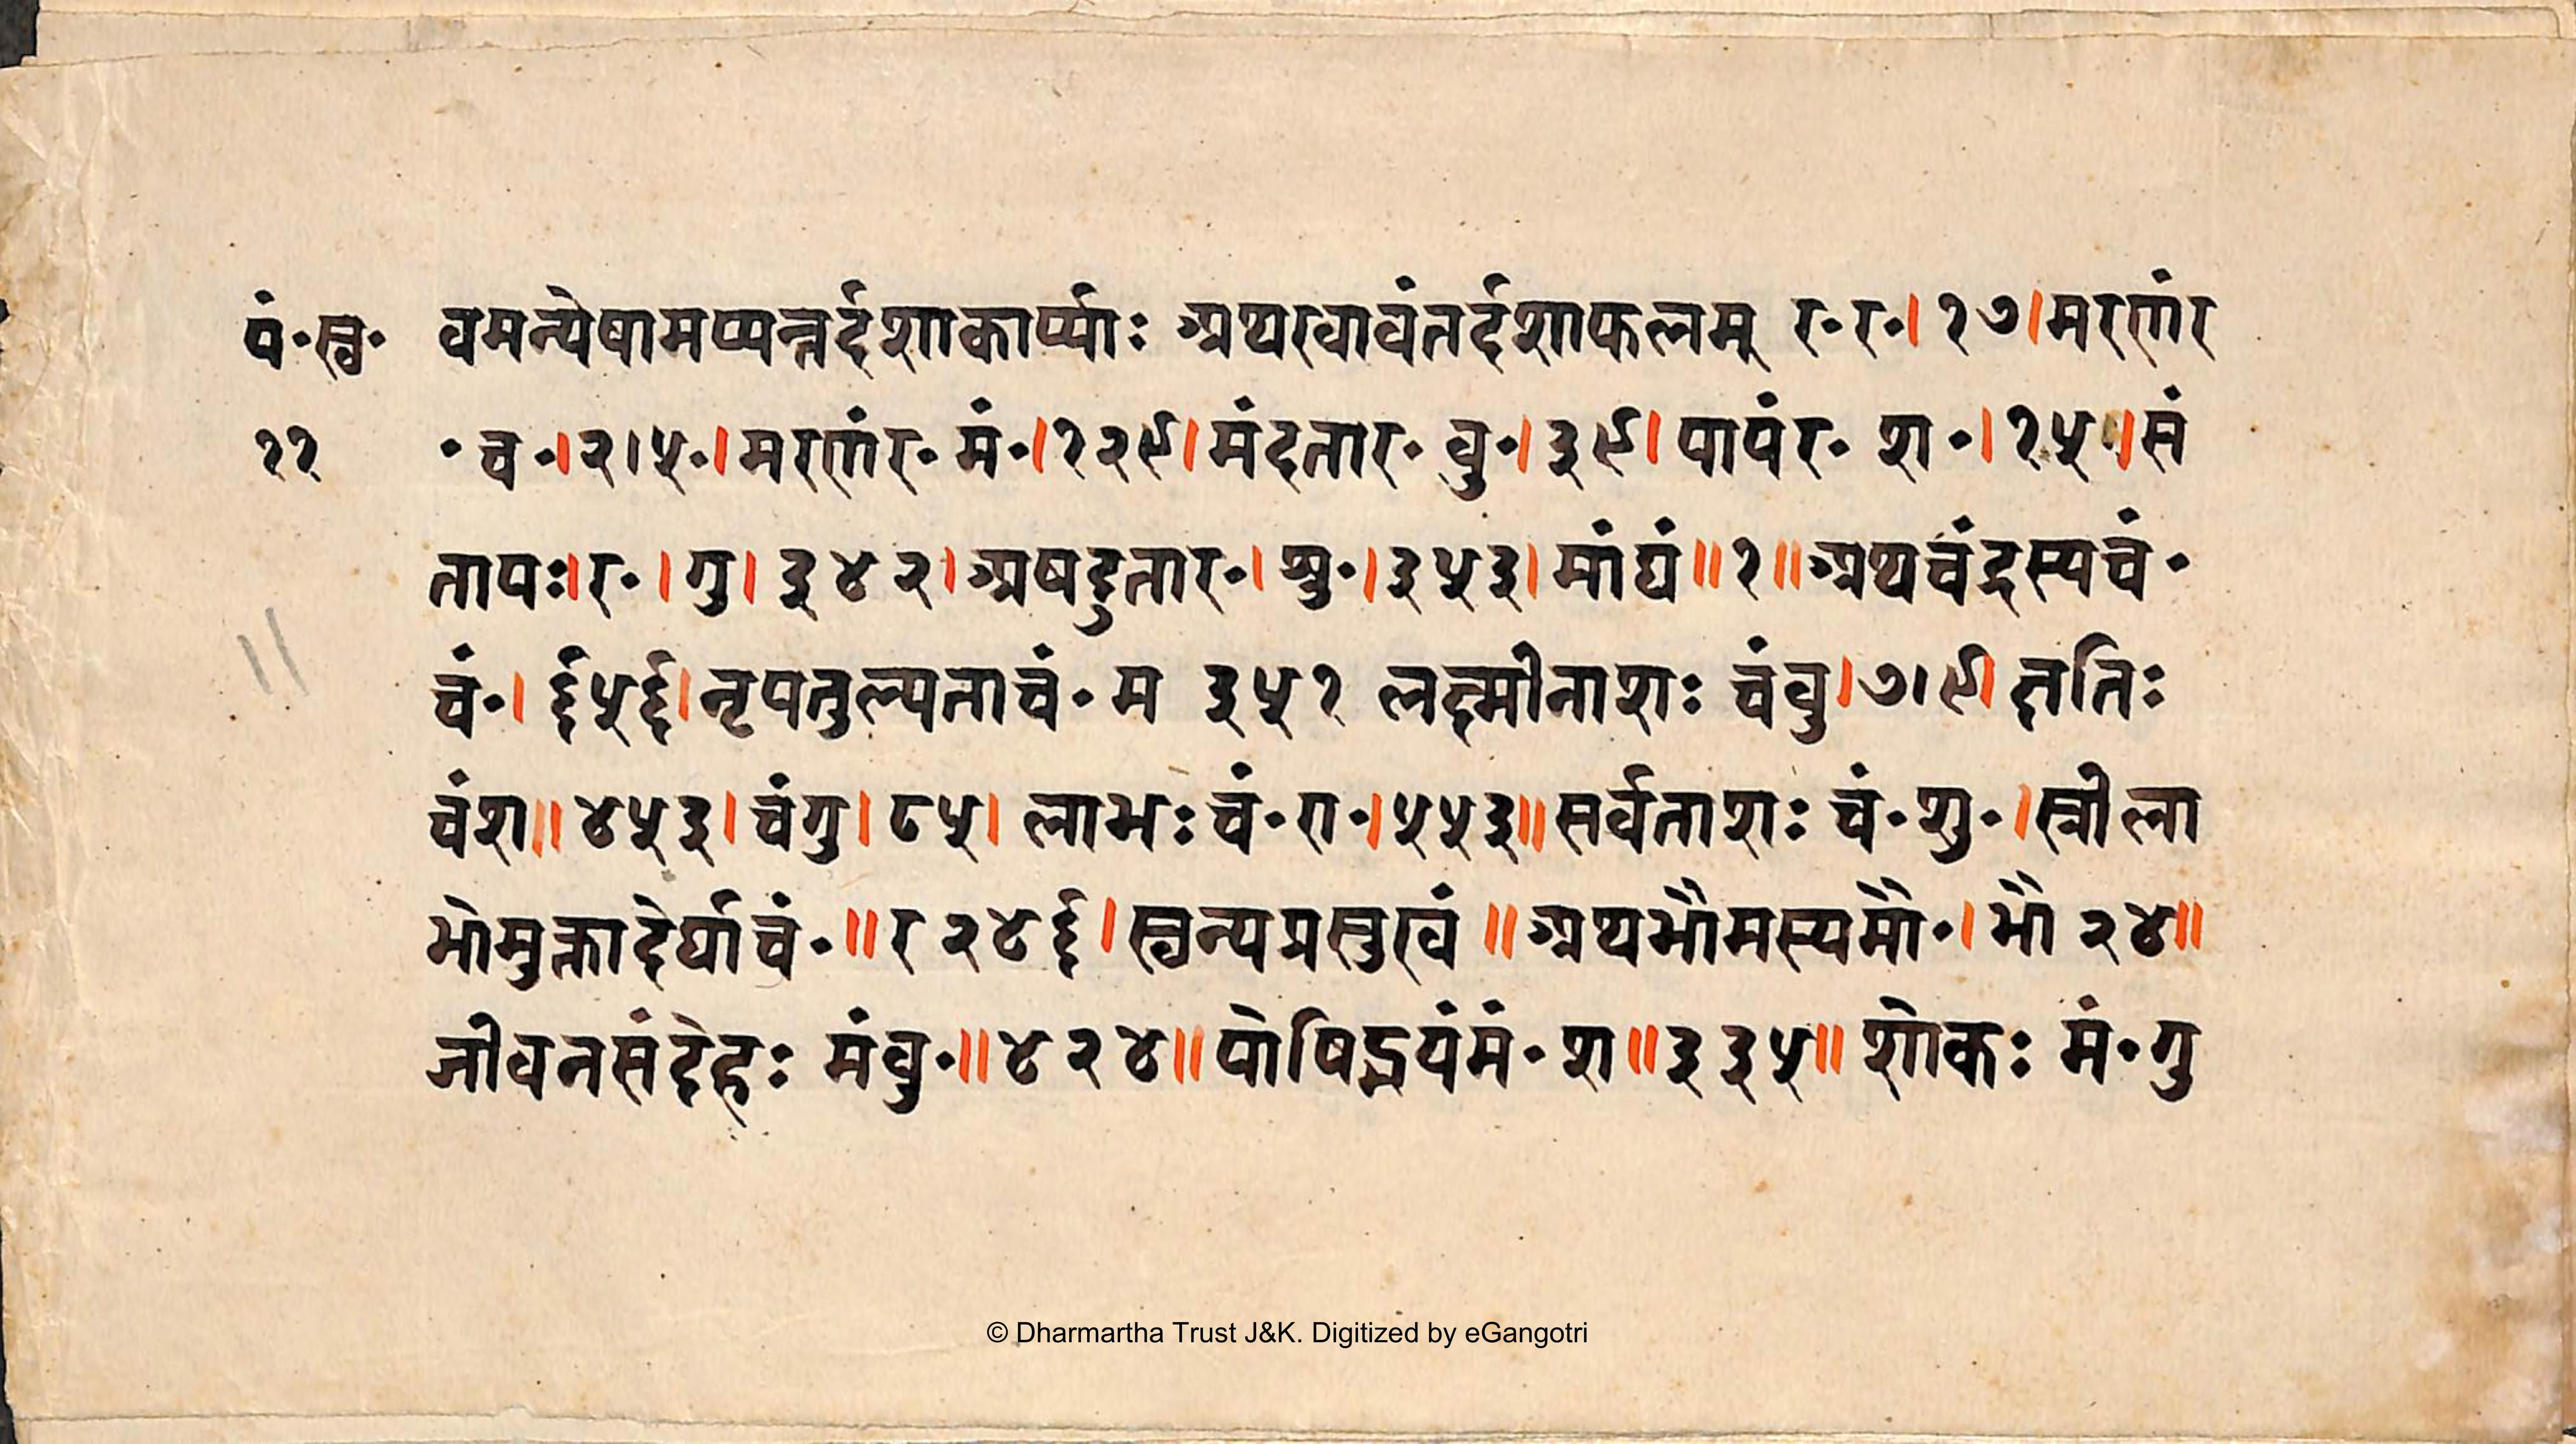 पं॰स्व॰ वमन्येषामप्यन्तर्दशाकार्प्याः अथरवावंतर्दशाफलम् र॰र॰। १७।मरणंर
११ ॰ च॰।२।५॰।मरणंर॰ मं॰।१२९।मंदतार॰ बु॰।३९। पापंर॰ श॰।१५॥सं
तापः।र॰।गु। ३४२।अषद्गुतार॰। शु॰।३५३। मांद्यं॥१॥अथचंद्रस्यचं॰
चं॰। ६५६।नृपतुल्यताचं॰म ३५१ लक्ष्मीनाशः चंबु।७।९। क्षतिः
चंश॥४५३।चंगु। ८५। लाभःचं॰रा॰।५५३॥सर्वताशः चं॰शु॰।स्त्रीला
भोमुक्तादेर्घाचं॰॥र २४६।स्वन्यप्रसुखं॥अथभौमस्यमौ॰।भौ २४॥
जीवनसंदेहः मंबु॰॥४२४॥योषिद्भयंमं॰श॥३३५॥शोकः मं॰गु
© Dharmartha Trust J&K. Digitized by eGangotri